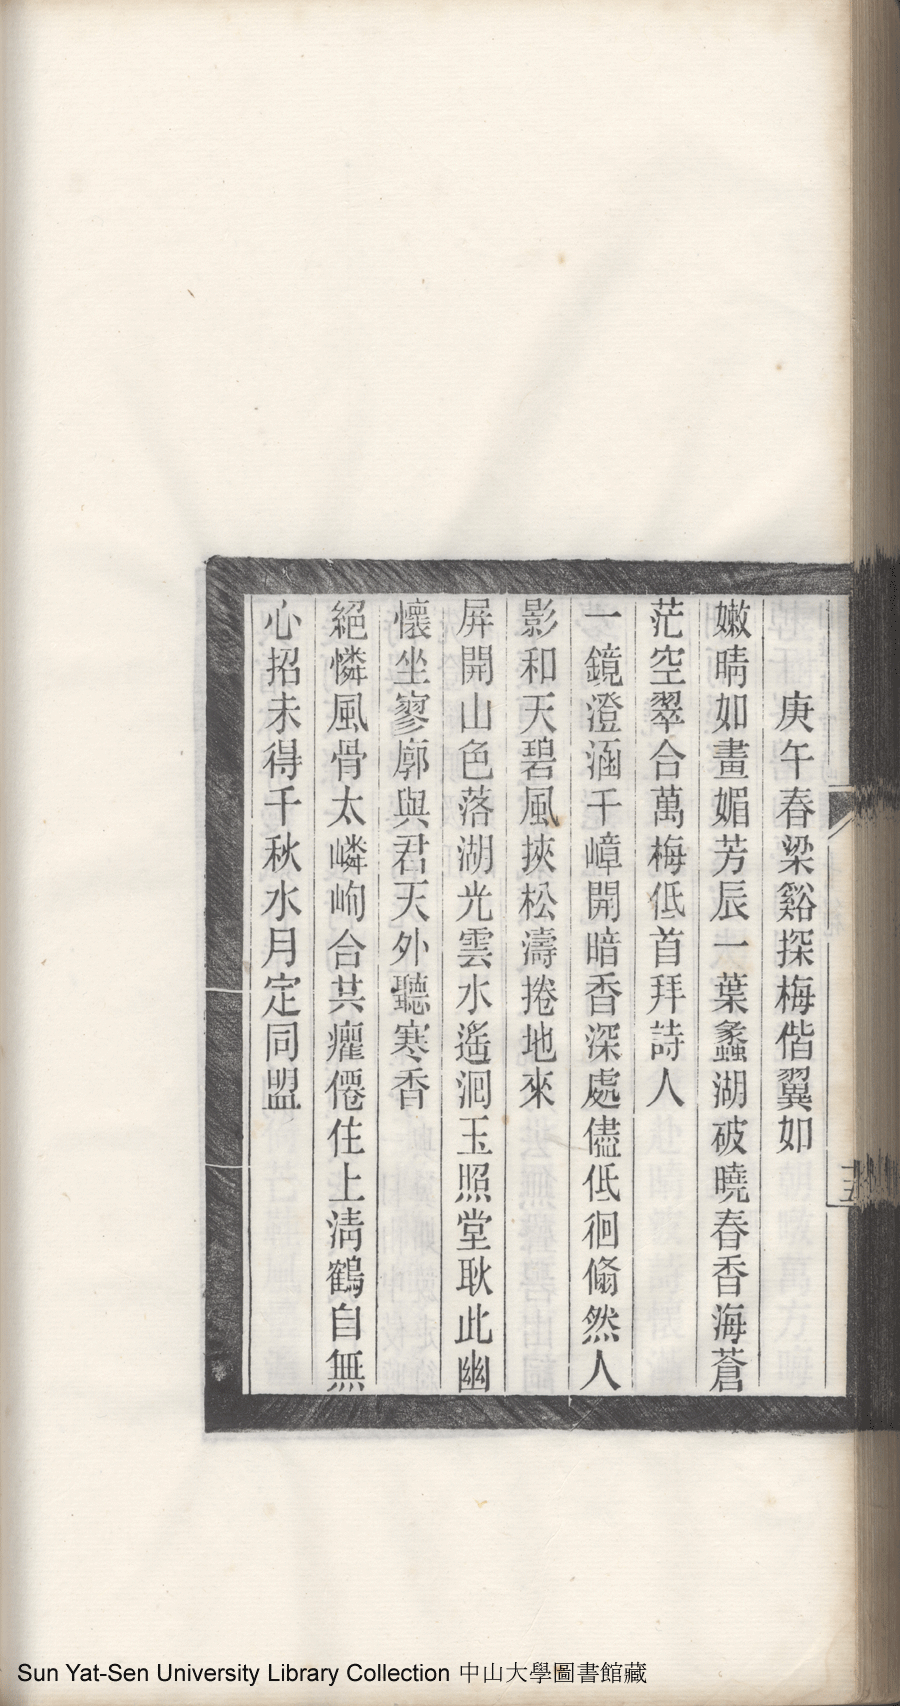 庚午春梁谿探梅偕翼如
嫩晴如畫媚芳辰一葉蠡湖破曉春香海蒼
茫空翠合萬梅低首拜詩人
一鏡澄涵千嶂開暗香深處儘低徊翛然人
影和天碧風挾松濤捲地來
屏開山色落湖光雲水遙洄玉照堂耿此幽
懷坐寥廓與君天外聽寒香
絕憐風骨太嶙峋合共癯僊住上淸鶴自無
心招未得千秋水月定同盟
Sun Yat-Sen University Library Collection 中山大學圖書館藏